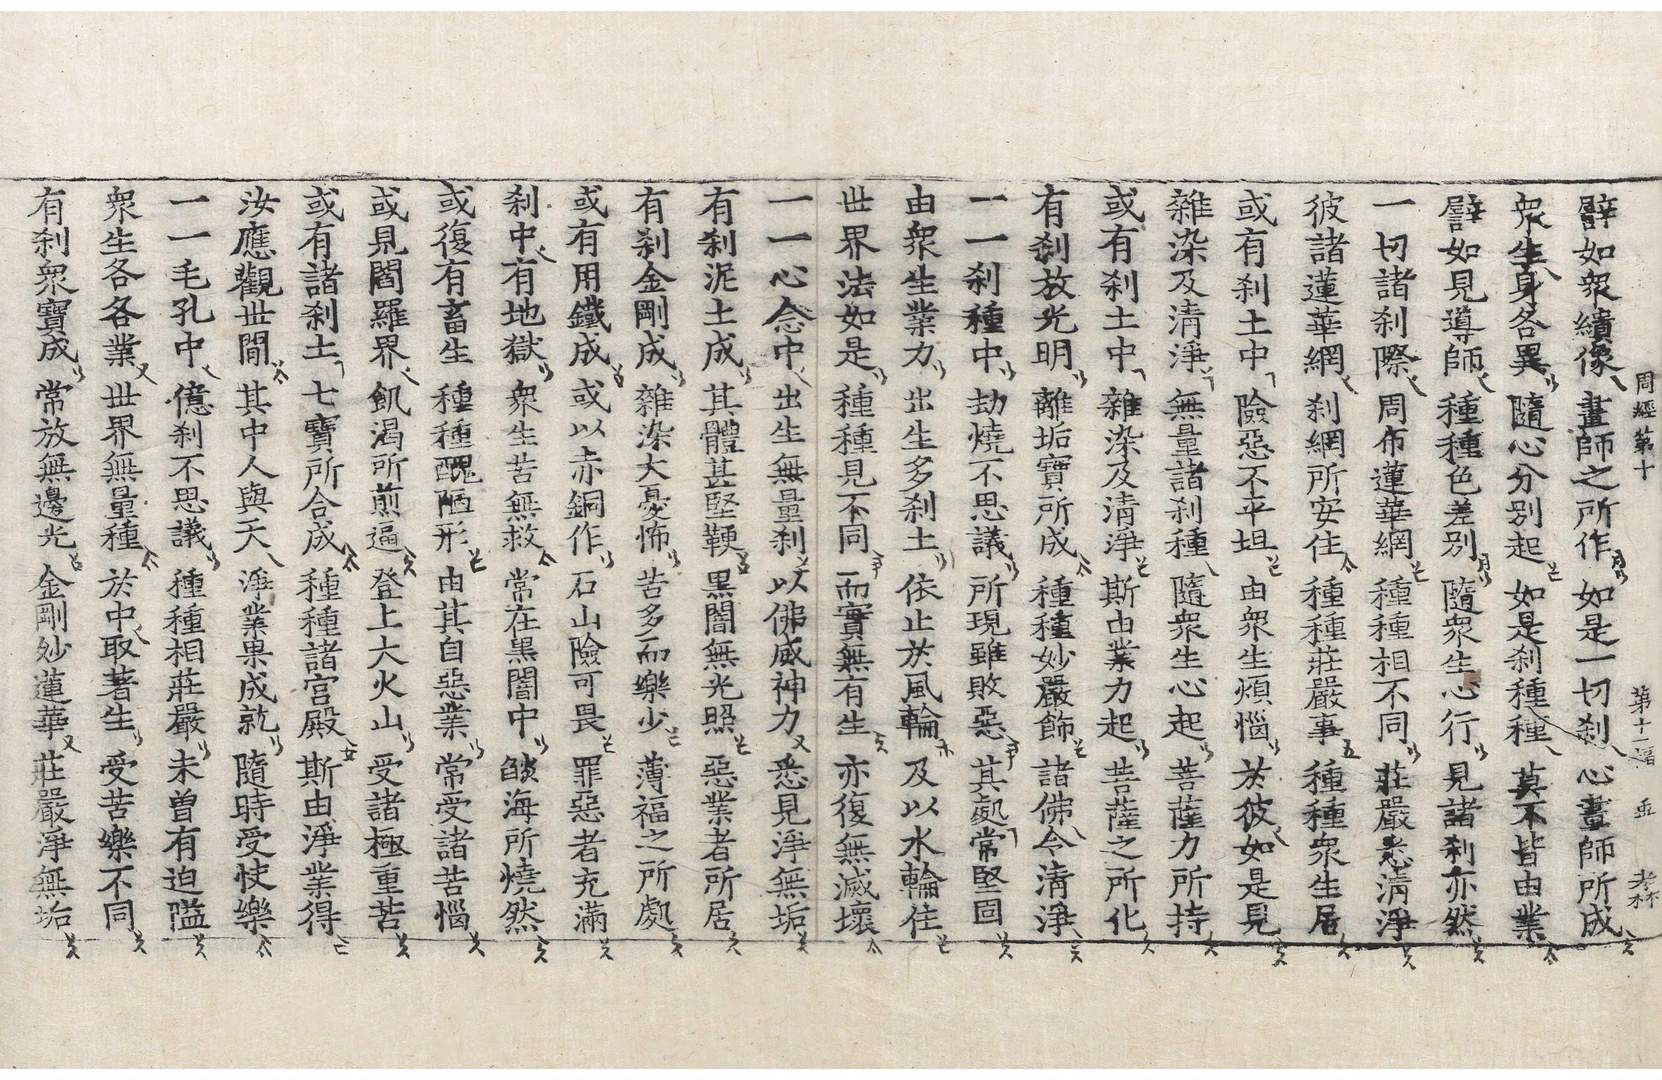 周經第十
譬如衆繢像 畫師之所作 如是一切刹 心畫師所成
衆生身各異 隨心分別起 如是刹種種 莫不皆由業
譬如見導師 種種色差別 隨衆生心行 見諸刹亦然
一切諸刹際 周布蓮華網 種種相不同 莊嚴悉清淨
彼諸蓮華網 刹網所安住 種種莊嚴事 種種衆生居
或有刹土中 險惡不平坦 由衆生煩惱 於彼如是見
雜染及清淨 無量諸刹種 隨衆生心起 菩薩力所持
或有刹土中 雜染及清淨 斯由業力起 菩薩之所化
有刹放光明 離垢寶所成 種種妙嚴飾 諸佛令清淨
一一刹種中 劫燒不思議 所現雖敗惡 其處常堅固
由衆生業力 出生多刹土 依止於風輪 及以水輪住
世界法如是 種種見不同 而實無有生 亦復無滅壞
一一心念中 出生無量刹 以佛威神力 悉見淨無垢
有刹泥土成 其體甚堅鞕 黑闇無光照 惡業者所居
有刹金剛成 雜染大憂怖 苦多而樂少 薄福之所處
或有用鐵成 或以赤銅作 石山險可畏 罪惡者充滿
刹中有地獄 衆生苦無救 常在黑闇中 焰海所燒然
或復有畜生 種種醜陋形 由其自惡業 常受諸苦惱
或見閻羅界 飢渴所煎逼 登上大火山 受諸極重苦
或有諸刹土 七寶所合成 種種諸宮殿 斯由淨業得
汝應觀世間 其中人與天 淨業果成就 隨時受快樂
一一毛孔中 億刹不思議 種種相莊嚴 未曾有迫隘
衆生各各業 世界無量種 於中取著生 受苦樂不同
有刹衆寶成 常放無邊光 金剛妙蓮華 莊嚴淨無垢